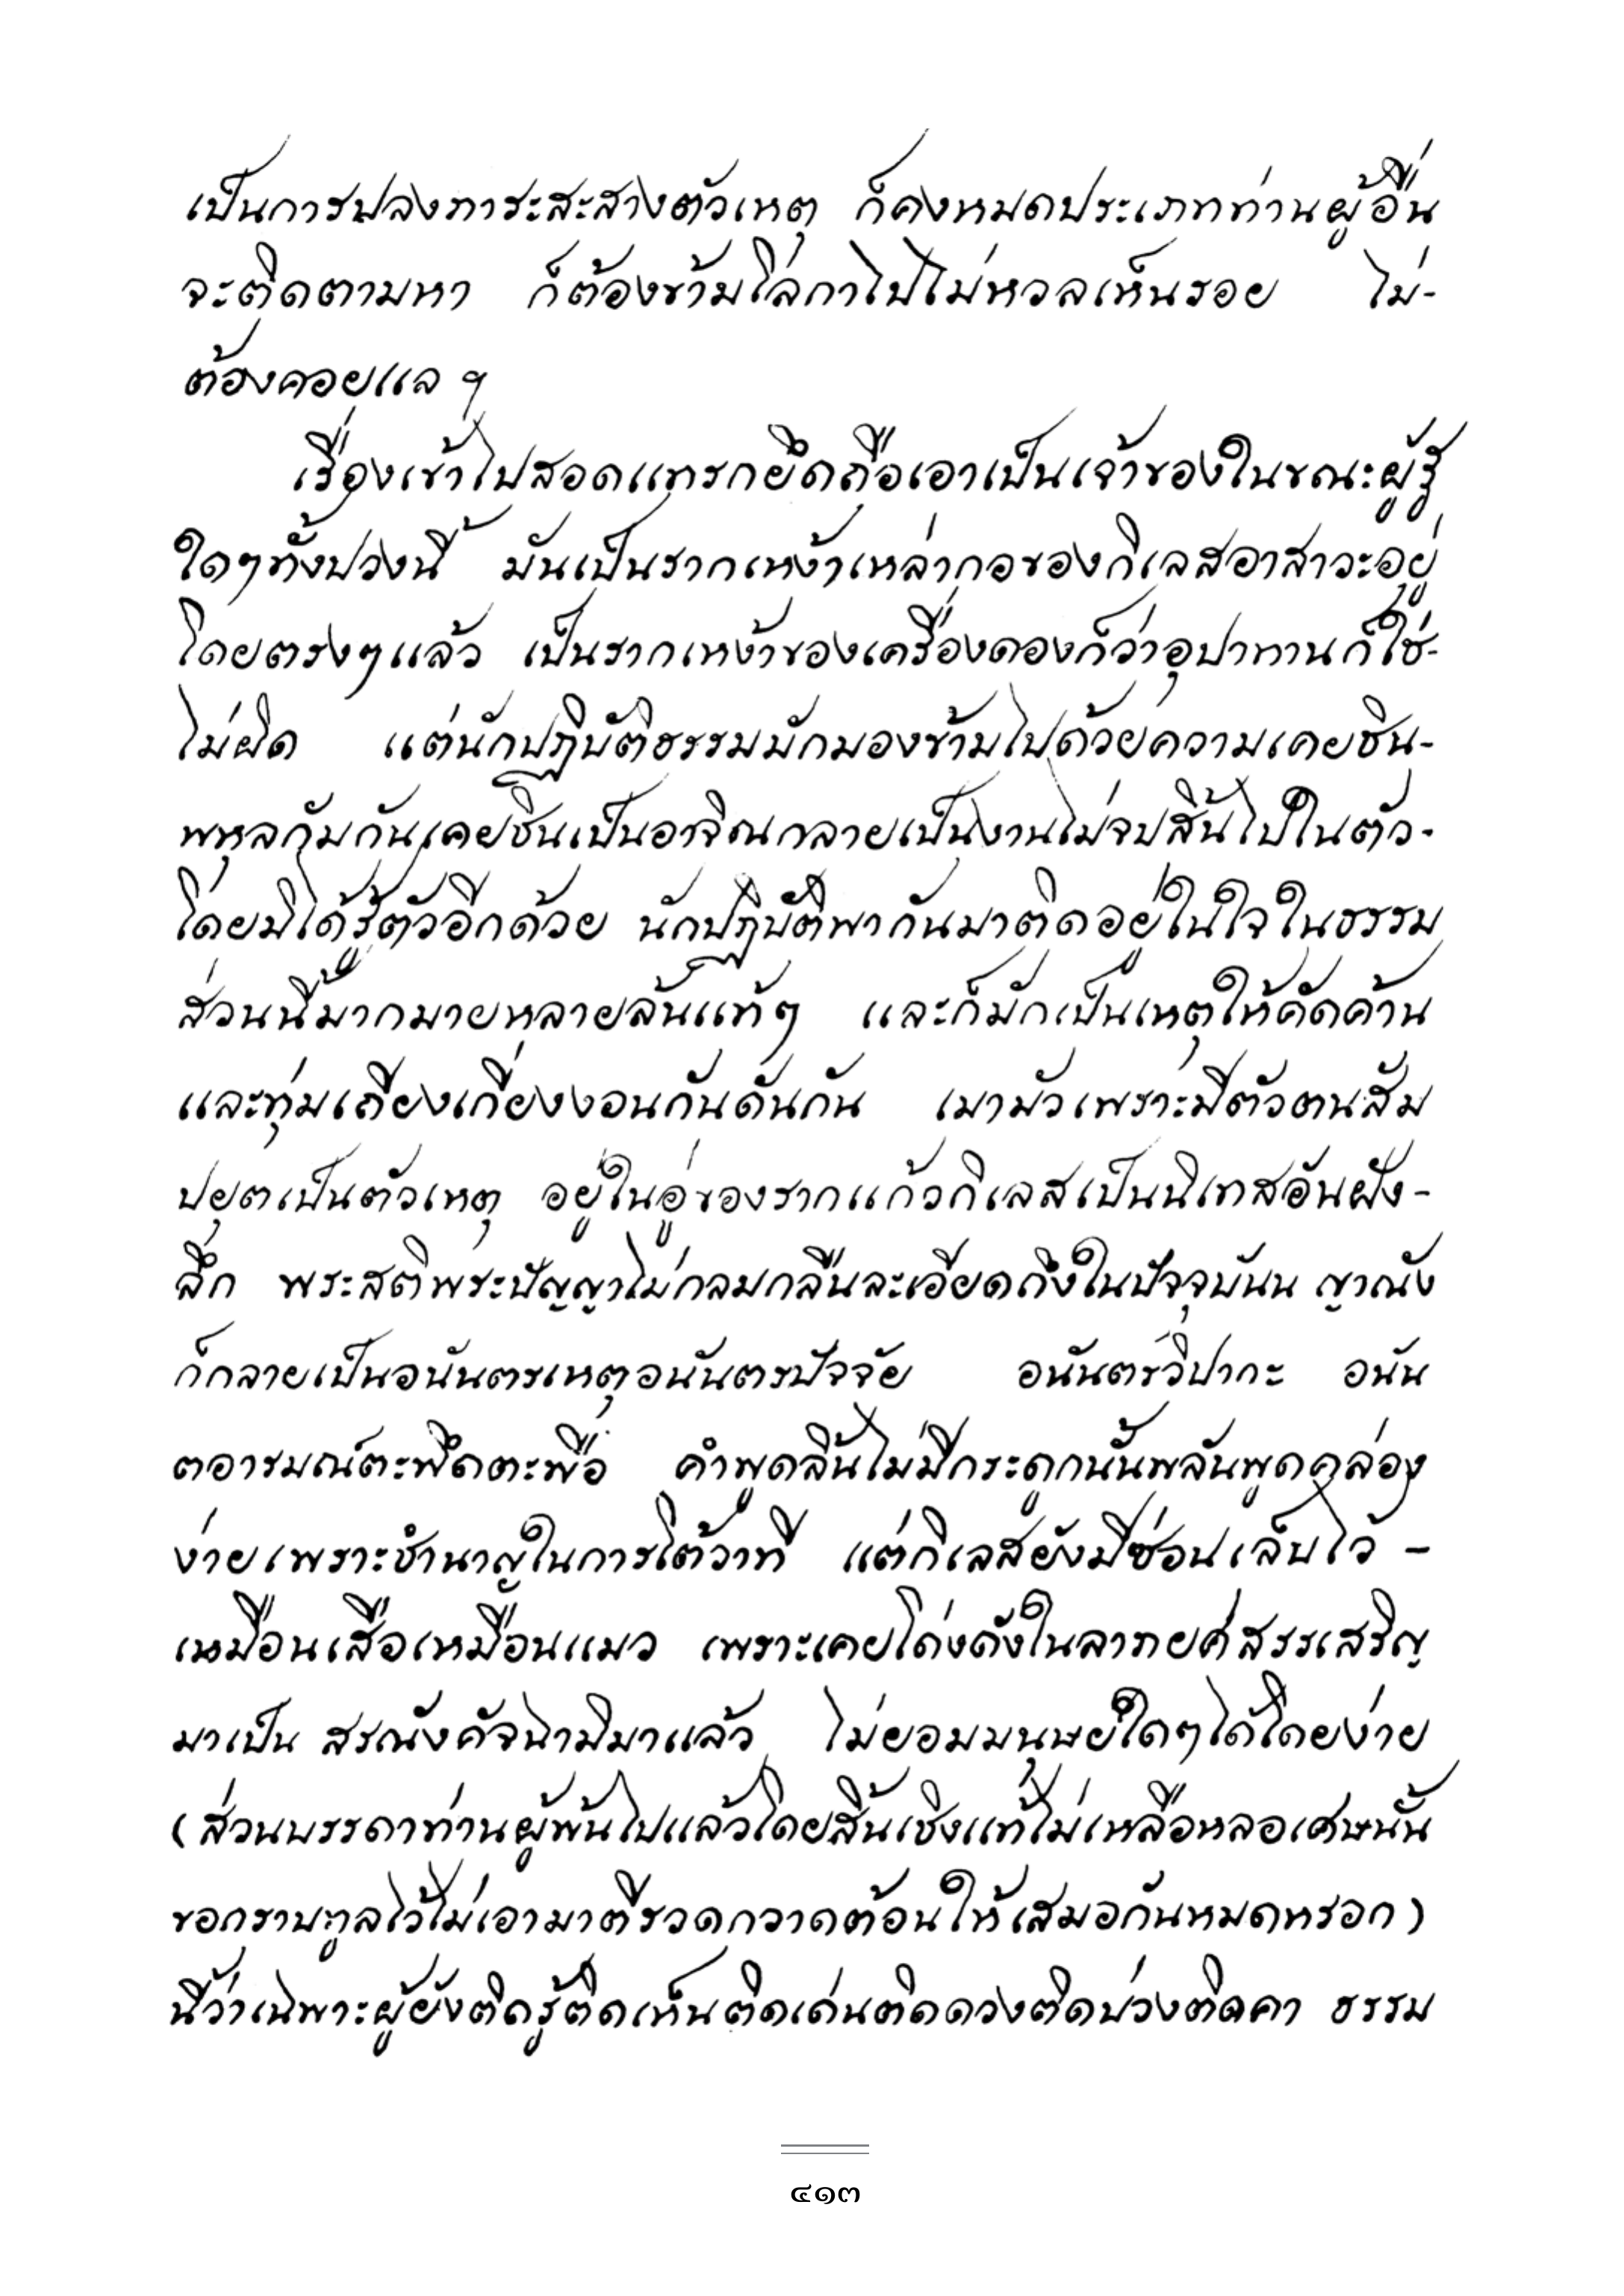 เป็นการปลงภาระสะสางตัวเหตุ ก็คงหมดประเภทท่านผู้อื่น
จะติดตามหา ก็ต้องข้ามโลกาไปไม่หวลเห็นรอย ไม่-
ต้องคอยแล ฯ
เรื่องเข้าไปสอดแทรกยึดถือเอาเป็นเจ้าของในขณะผู้รู้
ใดๆทั้งปวงนี้ มันเป็นรากเหง้าเหล่ากอของกิเลสอาสาวะอยู่
โดยตรงๆแล้ว เป็นรากเหง้าของเครื่องดองก็ว่าอุปาทานก็ใช่-
ไม่ผิด แต่นักปฏิบัติธรรมมักมองข้ามไปด้วยความเคยชิน-
พหุลกัมกันเคยชินเป็นอาจิณกลายเป็นงานไม่จบสิ้นไปในตัว-
โดยมิได้รู้ตัวอีกด้วย นักปฏิบัติพากันมาติดอยู่ในใจในธรรม
ส่วนนี้มากมายหลายล้นแท้ๆ และก็มักเป็นเหตุให้คัดค้าน
และทุ่มเถียงเกี่ยงงอนกันดันกัน เมามัวเพราะมีตัวตนสัม
ปยุตเป็นตัวเหตุ อยู่ในอู่ของรากแก้วกิเลสเป็นนิเทสอันฝัง-
ลึก พระสติพระปัญญาไม่กลมกลืนละเอียดถึงในปัจจุบันน ญาณัง
ก็กลายเป็นอนันตรเหตุอนันตรปัจจัย อนันตรวิปากะ อนัน
ตอารมณ์ตะพึดตะพือ คำพูดลิ้นไม่มีกระดูกนั้นพลันพูดคล่อง
ง่ายเพราะชำนาญในการโต้วาที แต่กิเลสยังมีซ่อนเล็บไว้ -
เหมือนเสือเหมือนแมว เพราะเคยโด่งดังในลาภยศสรรเสริญ
มาเป็น สรณังคัจฉามิมาแล้ว ไม่ยอมมนุษย์ใดๆได้โดยง่าย
(ส่วนบรรดาท่านผู้พ้นไปแล้วโดยสิ้นเชิงแท้ไม่เหลือหลอเศษนั้น
ขอกราบทูลไว้ไม่เอามาตีรวดกวาดต้อนให้เสมอกันหมดหรอก)
นี้ว่าเฉพาะผู้ยังติดรู้ติดเห็นติดเด่นติดดวงติดบ่วงติดคา ธรรม
๔๑๓